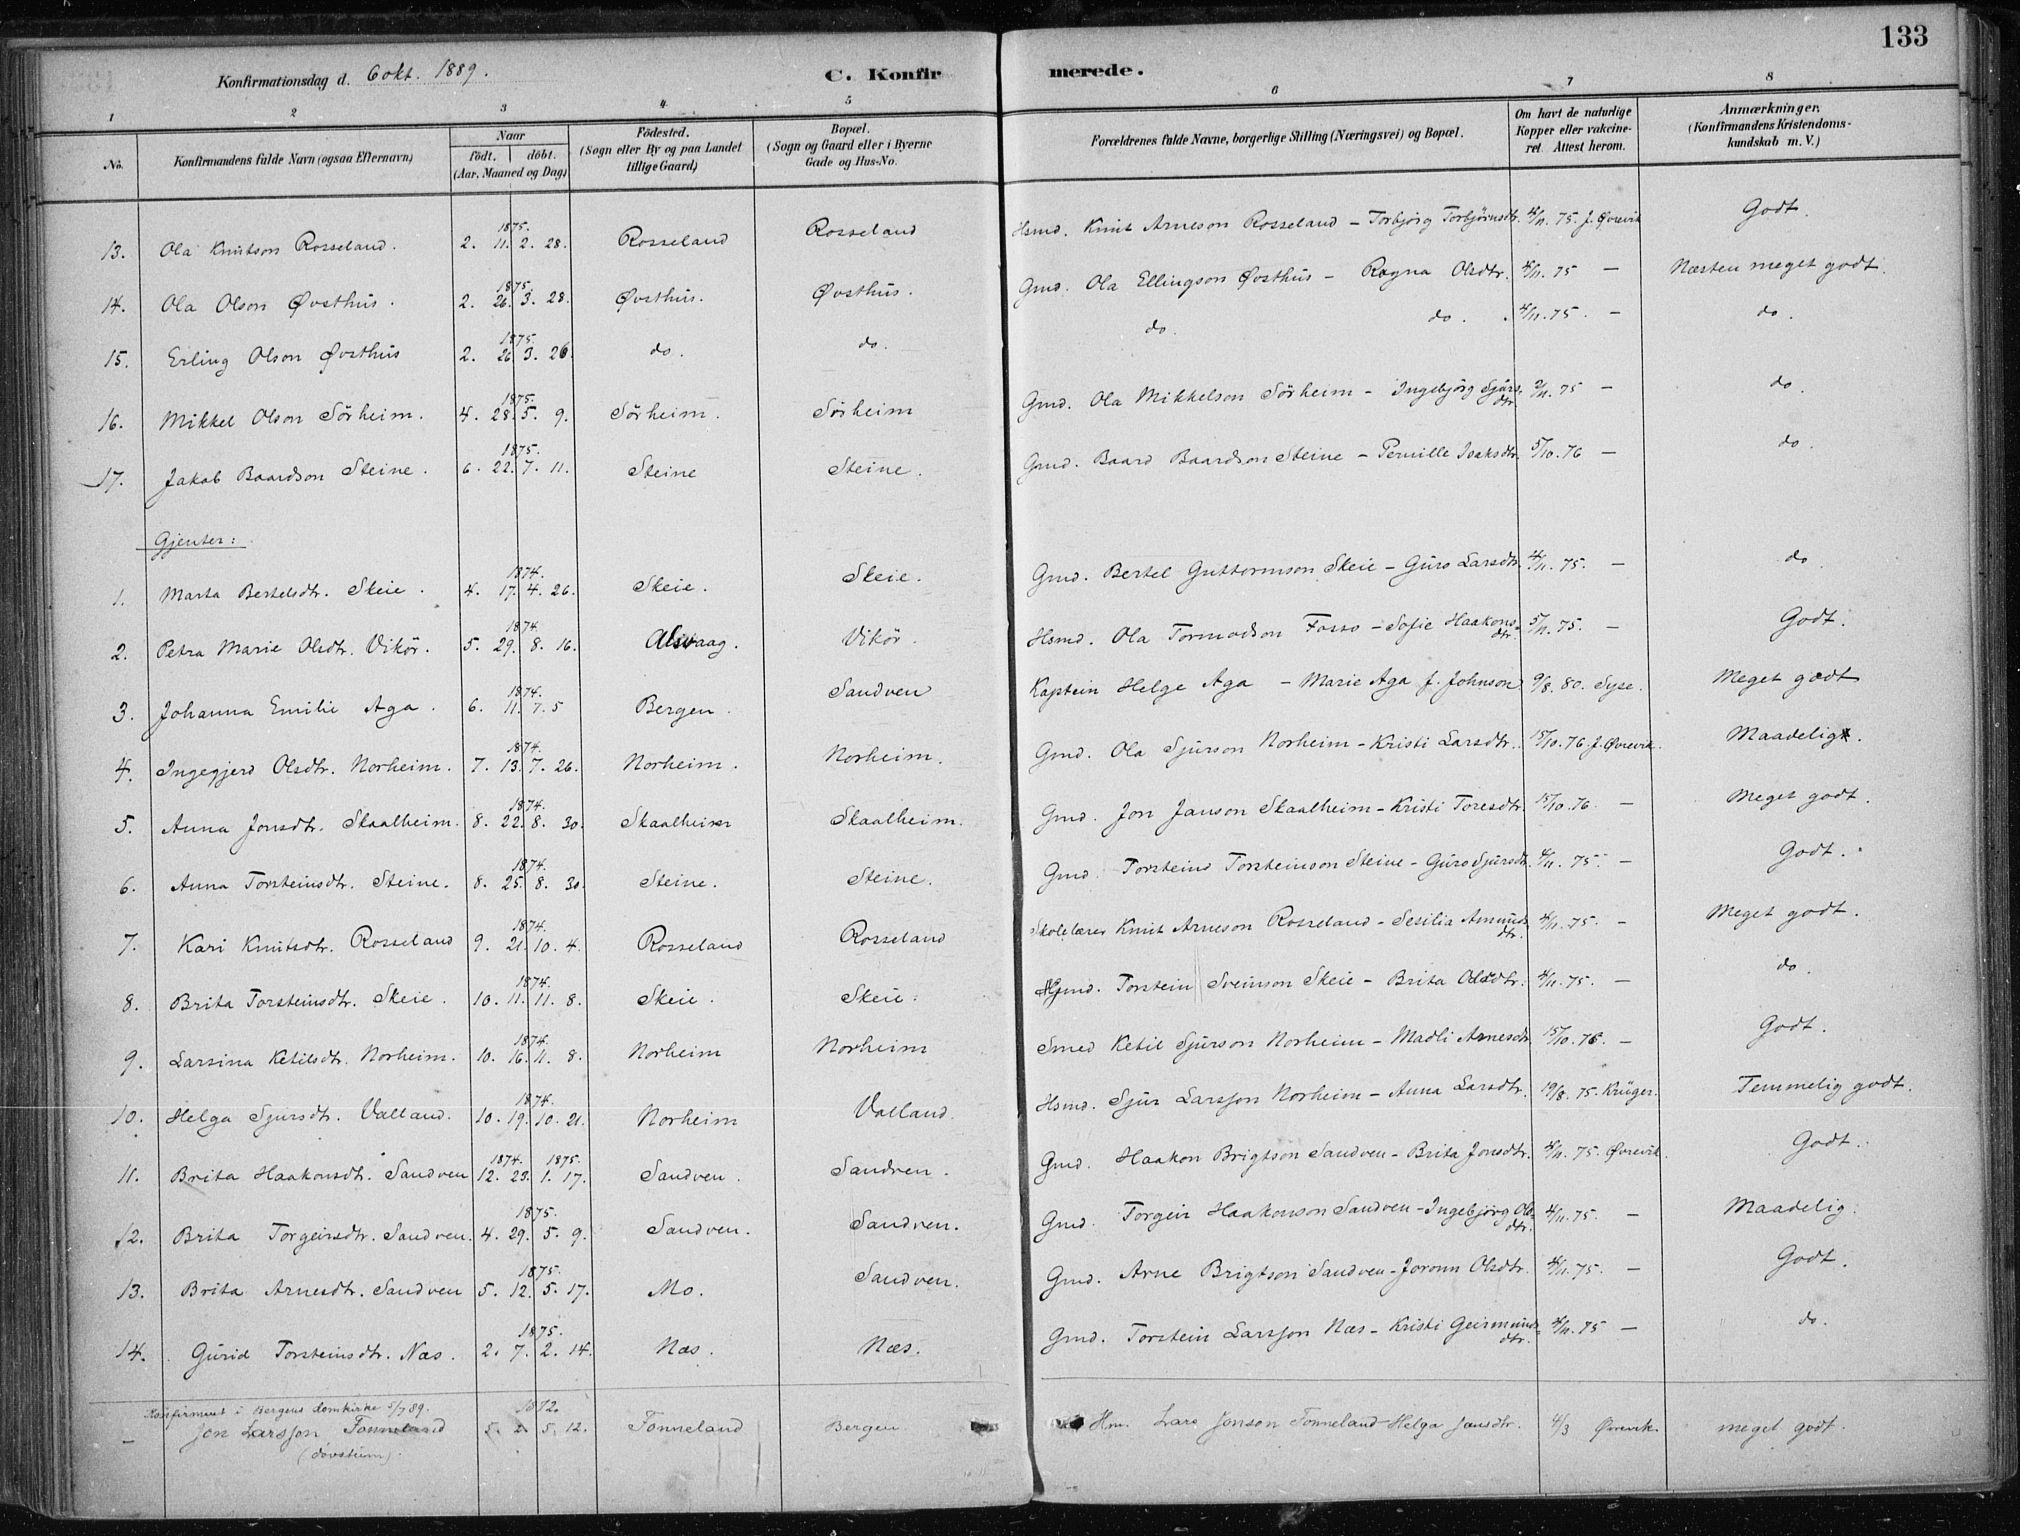 133
Konfirmationsdag d. 6 okt. 1889. C. Konfirmerede.
1 2 3 4 5 6 7 8
No. Konfirmandens fulde Navn (ogsaa Efternavn) Naar födt. döbt. (Aar, Maaned og Dag) Födested. (Sogn eller By og paa Landet tillige Gaard) Bopæl. (Sogn og Gaard eller i Byerne Gade og Hus-No. Forældrenes fulde Navne, borgerlige Stilling (Næringsvei) og Bopæl. Om havt de naturlige Kopper eller vakcineret. Attest herom. Anmærkninger. (Konfirmandens Kristendomskundskab m. V.)
13. Ola Knutson Rosseland. 1875. 2. 11. 2. 28. Rosseland Rosseland Hsmd. Knut Arneson Rosseland - Torbjørg Torbjørnsdtr. 4/11. 75. J. Øvrevik Godt.
14. Ola Olson Øvsthus. 1875. 2. 26. 3. 28. Øvsthus. Øvsthus. Gmd. Ola Ellingson Øvsthus - Ragna Olsdtr. 4/11. 75 — Næsten meget godt.
15. Erling Olson Øvsthus 1875. 2. 26. 3. 26. do. do. do. do. 4/11. 75. — do.
16. Mikkel Olson Sörheim. 1875. 4. 28. 5. 9. Sörheim. Sörheim Gmd. Ola Mikkelson Sörheim - Ingebjörg Sjursdtr. 2/11. 75 — do.
17. Jakob Baardson Steine. 1875. 6. 22. 7. 11. Steine Steine. Gmd. Baard Baardson Steine - Pernille Isaksdtr. 5/10. 76 — do.
Gjenter:
1. Marta Bertelsdtr. Skeie. 1874. 4. 17. 4. 26. Skeie. Skeie. Gmd. Bertel Guttormson Skeie - Guro Larsdtr. 4/11. 75. — do
2. Petra Marie Olsdtr. Vikör. 1874. 5. 29. 8. 16. Alsvaag. Vikör. Hsmd. Ola Tormodson Fosso - Sofie Haakonsdtr. 5/11. 75. — Godt.
3. Johanna Emilie Aga. 1874. 6. 11. 7. 5 Bergen. Sandven Kaptein Helge Aga - Marie Aga f. Johnson 9/8. 80. Syse. Meget godt
4. Ingegjerd Olsdtr. Norheim. 1874. 7. 13. 7. 26. Norheim. Norheim. Gmd. Ola Sjurson Norheim - Kristi Larsdtr. 15/10. 76 J. Øvrevik. Maadelig.
5. Anna Jonsdtr. Skaalheim. 1874. 8. 22. 8. 30. Skaalheim Skaalheim. Gmd. Jon Janson Skaalheim - Kristi Toresdtr. 15/10. 76. — Meget godt.
6. Anna Torsteinsdtr. Steine. 1874. 8. 25. 8. 30. Steine. Steine. Gmd. Torstein Torsteinson Steine - Guro Sjursdtr. 4/11. 75. — Godt.
7. Kari Knutsdtr. Rosseland 1874. 9. 21. 10. 4. Rosseland Rosseland Skolelærer Knut Arneson Rosseland - Sesilia Amundsdtr. 4/11. 75. — Meget godt.
8. Brita Torsteinsdtr. Skeie. 1874. 10. 11. 11. 8. Skeie. Skeie. Gmd. Torstein Sveinson Skeie - Brita Olsdtr. 4/11. 75. — do.
9. Larsina Ketilsdtr. Norheim. 1874. 10. 16. 11. 8. Norheim Norheim Smed Ketil Sjurson Norheim - Madli Arnesdtr. 15/10. 76. — Godt.
10. Helga Sjursdtr. Valland. 1874. 10. 19. 10. 21. Norheim Valland. Hsmd. Sjur Larsson Norheim - Anna Larsdtr. 19/8. 75. Krüger. Temmelig godt.
11. Brita Haakonsdtr. Sandven 1874. 1875. 12. 23. 1. 17. Sandven. Sandven. Gmd. Haakon Brigtson Sandven - Brita Jonsdtr. 4/11. 75. Øvrevik. Godt.
12. Brita Torgeirsdtr. Sandven. 1875. 4. 29. 5. 9. Sandven. Sandven. Gmd. Torgeir Haakonson Sandven - Ingebjörg Olsdtr. 4/11. 75. — Maadelig.
13. Brita Arnesdtr. Sandven 1875. 5. 12. 5. 17. Mo. Sandven. Gmd. Arne Brigtson Sandven - Joronn Olsdtr. 4/11. 75. — Godt.
14. Gurid Torsteinsdtr. Næs. 1875. 2. 7. 2. 14. Næs. Næs. Gmd. Torstein Larsson Næs - Kristi Geirmundsdtr. 4/11. 75 — do.
Konfirmeret i Bergens domkirke 5/7 89.
— Jon Larsson Tonneland 1872. 5. 2. 5. 12. Tonneland Bergen Hm. Lars Jonson Tonneland - Helga Jansdtr. 4/3 Øvrevik. meget godt.
(døvstum).